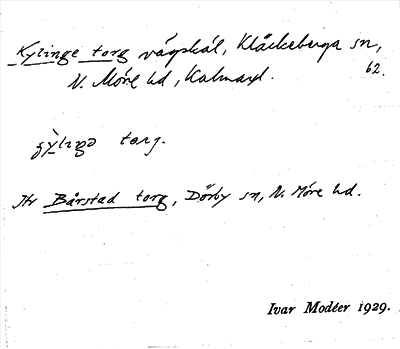 Kylinge torg vägskäl, Kläckeberga sn,
N. Möre hd, Kalmarl. 62.
torg.
Jfr Bårstad torg, Dörby sn, N. Möre hd.
Ivar Modéer 1929.